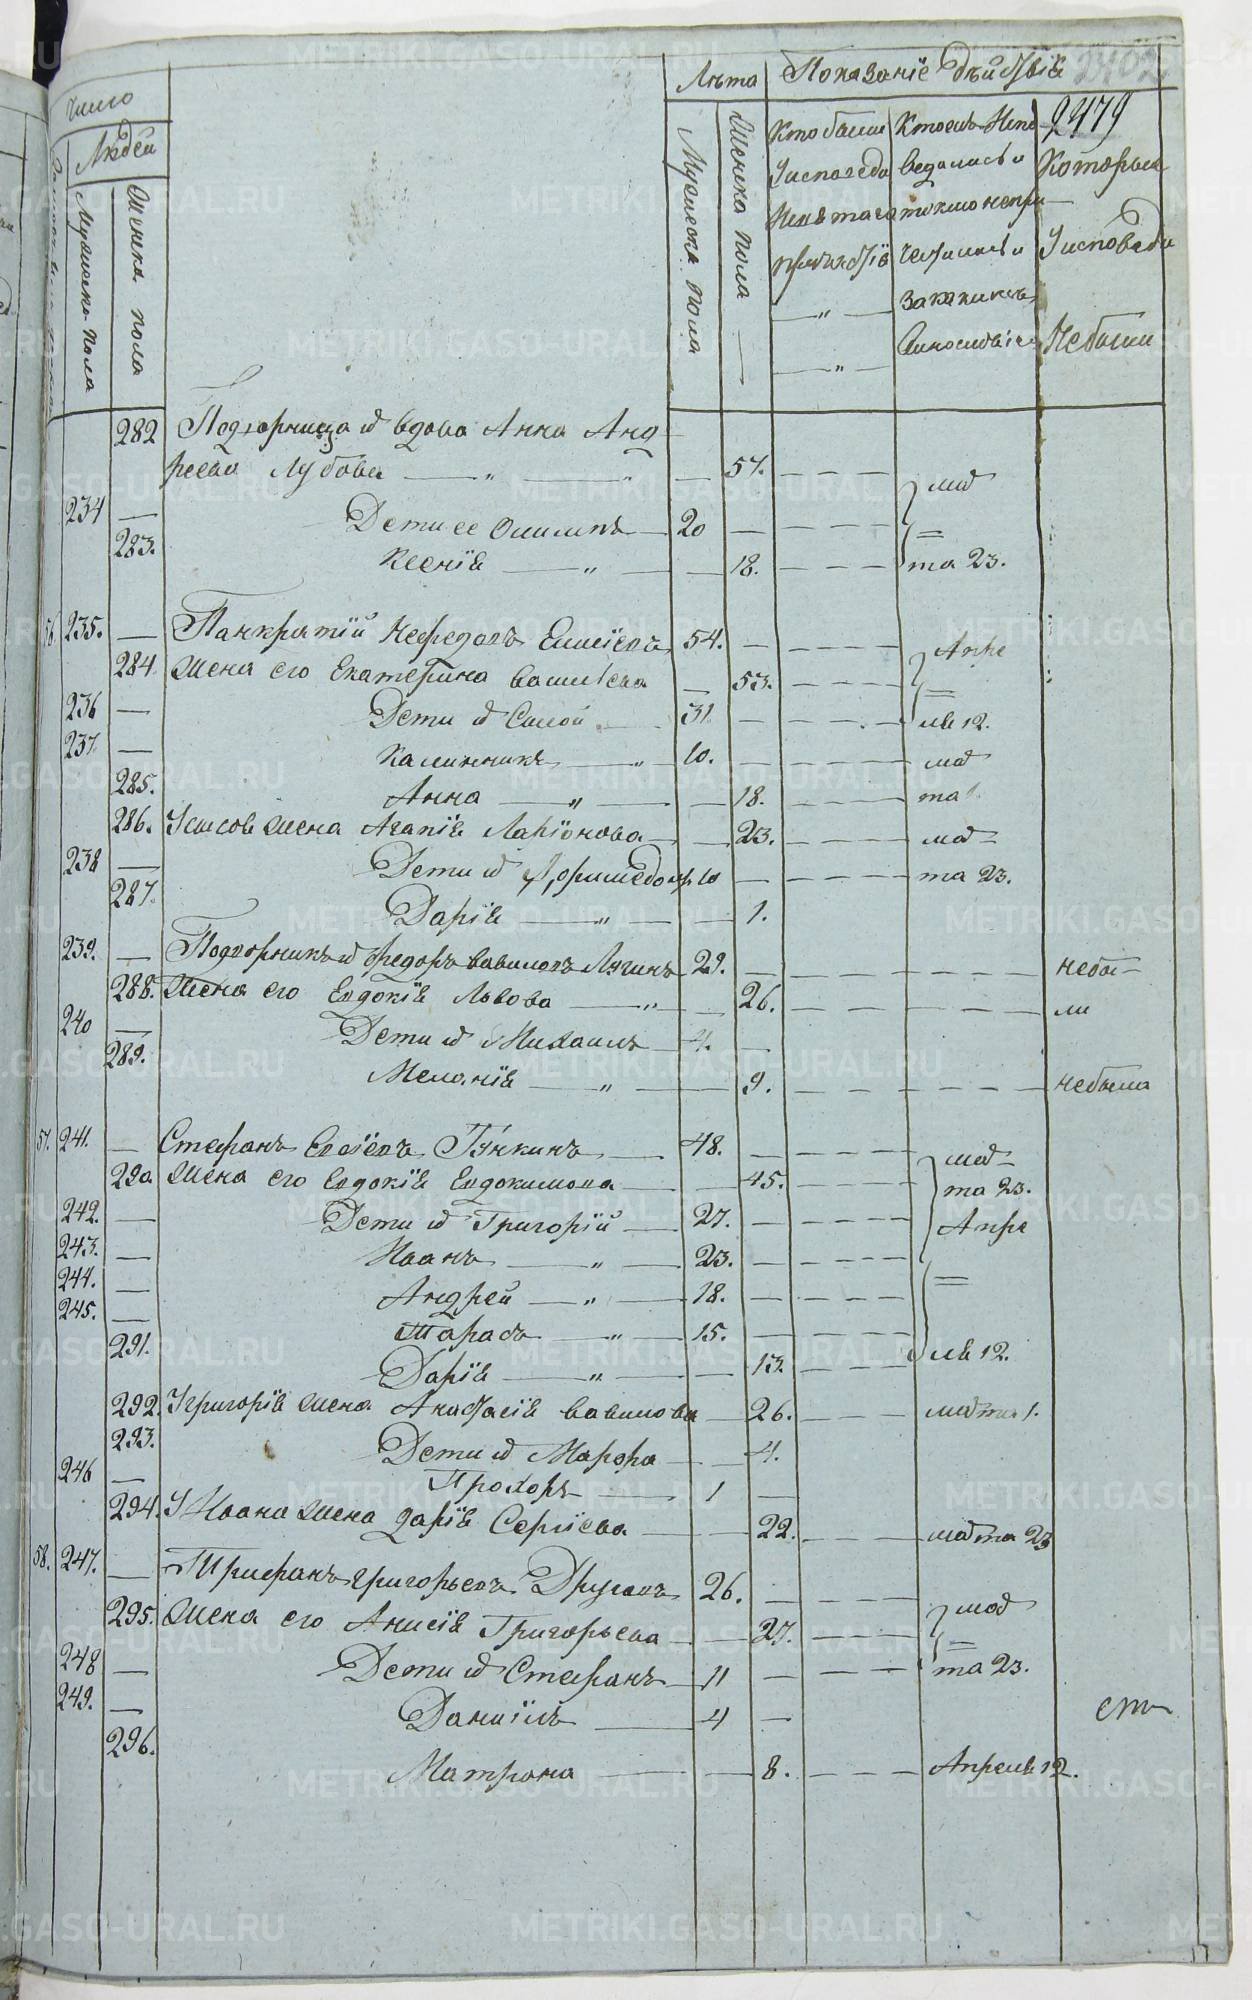 Число
Людей
Мужеска пола
Женска пола
Лѣта
Мужеска пола
Женска пола
Показаніе дѣйствій
2479
Кто были
Уисповеди
Исвтаго
причастія
Ктоежъ Испо
ведались и
токмо непри
честились и
закакимъ
Которые
Уисповеди
Небыли
282 Подворница ѿ вдова Анна Анд
реева Лубова 57. мар
234 Дети ее Филипъ 20
283. Ксенія 18. та 23.
56 235. Панкратій Нефедовъ Елисѣевъ 54. Апре
284 Жена его Екатерина васильева 53.
236 Дети ѿ Сысой 31 ля 12.
237 Калинникъ 10. мар
285. Анна 18. та 1.
286. Усысоя жена Агапія Ларіонова 23. мар
238 Дети ѿ 10 та 23.
287. Дарія 1.
239. Подворникъ ѿ Федоръ вавиловъ Лягинъ 29. небы
288. Жена его Евдокія Львова 26. ли
240 Дети ѿ Михаилъ 4.
289. Меланія 9. небыла
57. 241. Стефанъ Гункинъ 48. мар
290 Жена его Евдокія Евдокимова 45. та 23.
242. Дети ѿ Григорій 27. Апре
243. Иванъ 23.
244. Андрей 18.
245. Тарасъ 15.
291. Дарія 13. ля 12.
292. Угригорія жена Анастасія вавилова 26. марта 1.
293. Дети ѿ Марфа 4.
246 Прохоръ 1
294. У Ивана жена дарія Сергіева 22. марта 23
58. 247. Трифанъ григорьевъ 26.
295. Жена его Анисія Григорьева 27. мар
248 Дети ѿ Стефанъ 11 та 23.
249. Даніилъ 4
296. Матрона 8. Апреля 12.
METRIKI.GASO-URAL.RU